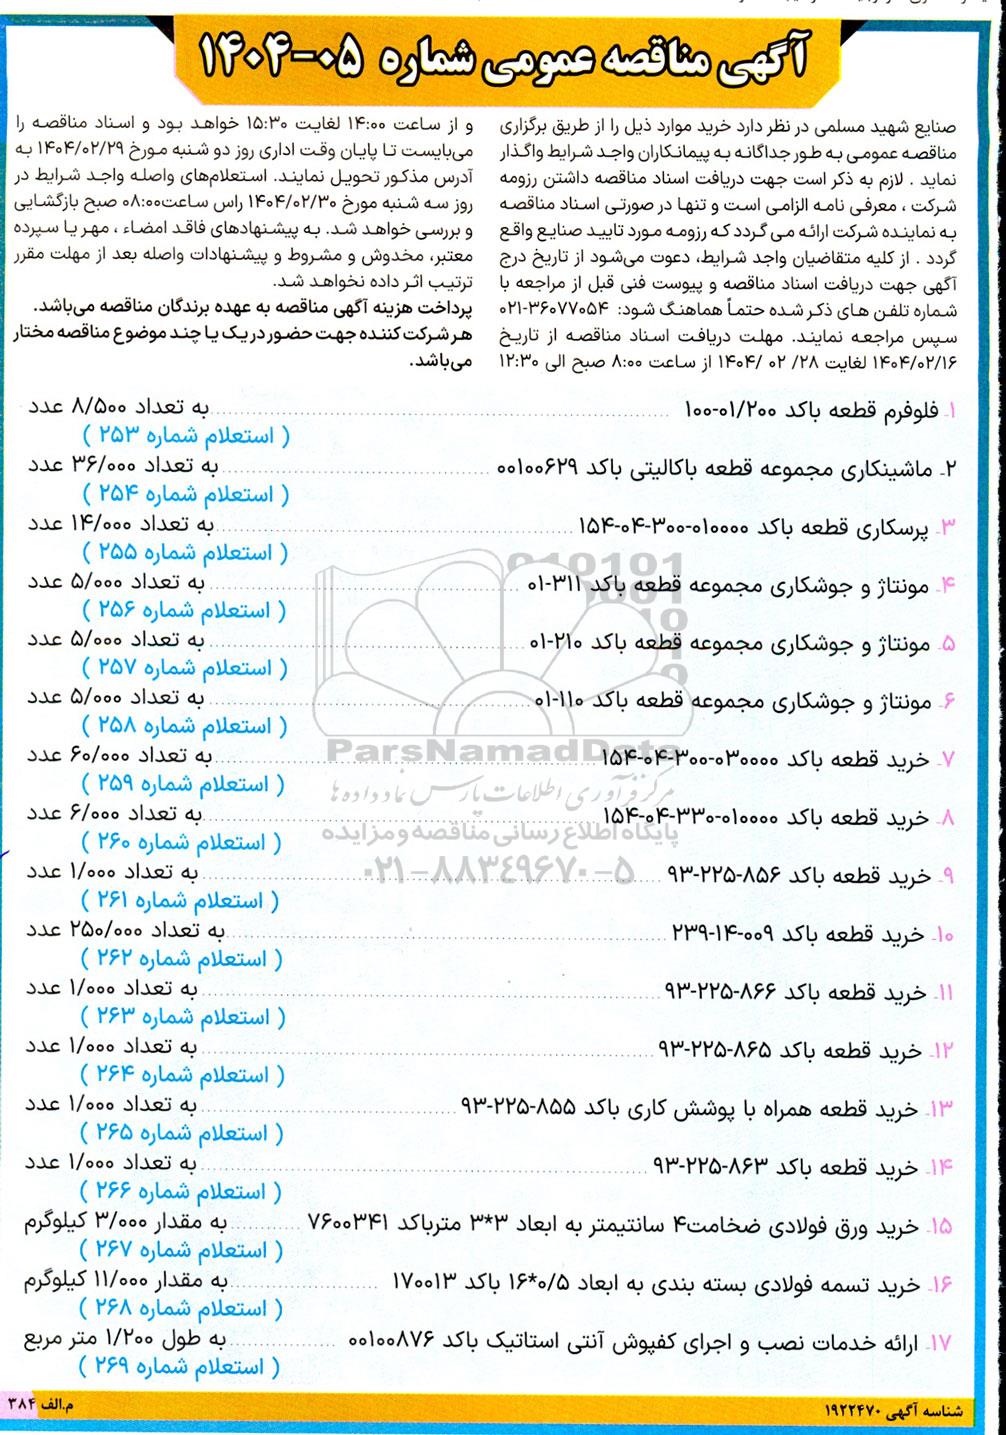 آگهی مناقصه عمومی شماره ۰۵-۱۴۰۴
صنایع شهید مسلمی در نظر دارد خرید موارد ذیل را از طریق برگزاری
مناقصه عمومی به طور جداگانه به پیمانکاران واجد شرایط واگذار
نماید . لازم به ذکر است جهت دریافت اسناد مناقصه داشتن رزومه
شرکت ، معرفی نامه الزامی است و تنها در صورتی اسناد مناقصه
به نماینده شرکت ارائه می گردد که رزومه مورد تایید صنایع واقع
گردد . از کلیه متقاضیان واجد شرایط، دعوت می‌شود از تاریخ درج
آگهی جهت دریافت اسناد مناقصه و پیوست فنی قبل از مراجعه با
شماره تلفن های ذکر شده حتماً هماهنگ شود: ۳۶۰۷۷۰۵۴-۰۲۱
سپس مراجعه نمایند. مهلت دریافت اسناد مناقصه از تاریخ
۱۴۰۴/۰۲/۱۶ لغایت ۲۸/ ۰۲ /۱۴۰۴ از ساعت ۸:۰۰ صبح الی ۱۲:۳۰
و از ساعت ۱۴:۰۰ لغایت ۱۵:۳۰ خواهد بود و اسناد مناقصه را
می‌بایست تا پایان وقت اداری روز دو شنبه مورخ ۱۴۰۴/۰۲/۲۹ به
آدرس مذکور تحویل نمایند. استعلام‌های واصله واجد شرایط در
روز سه شنبه مورخ ۱۴۰۴/۰۲/۳۰ راس ساعت۰۸:۰۰ صبح بازگشایی
و بررسی خواهد شد. به پیشنهادهای فاقد امضاء ، مهر یا سپرده
معتبر، مخدوش و مشروط و پیشنهادات واصله بعد از مهلت مقرر
ترتیب اثر داده نخواهد شد.
پرداخت هزینه آگهی مناقصه به عهده برندگان مناقصه می‌باشد.
هر شرکت کننده جهت حضور در یک یا چند موضوع مناقصه مختار
می‌باشد.
۱- فلوفرم قطعه باکد ۰۱/۲۰۰-۱۰۰ به تعداد ۸/۵۰۰ عدد
( استعلام شماره ۲۵۳ )
۲- ماشینکاری مجموعه قطعه باکالیتی باکد ۰۰۱۰۰۶۲۹ به تعداد ۳۶/۰۰۰ عدد
( استعلام شماره ۲۵۴ )
۳- پرسکاری قطعه باکد ۰۱۰۰۰۰-۳۰۰-۰۴-۱۵۴ به تعداد ۱۴/۰۰۰ عدد
( استعلام شماره ۲۵۵ )
۴- مونتاژ و جوشکاری مجموعه قطعه باکد ۳۱۱-۰۱ به تعداد ۵/۰۰۰ عدد
( استعلام شماره ۲۵۶ )
۵- مونتاژ و جوشکاری مجموعه قطعه باکد ۲۱۰-۰۱ به تعداد ۵/۰۰۰ عدد
( استعلام شماره ۲۵۷ )
۶- مونتاژ و جوشکاری مجموعه قطعه باکد ۱۱۰-۰۱ به تعداد ۵/۰۰۰ عدد
( استعلام شماره ۲۵۸ )
ParsNamadData
۷- خرید قطعه باکد ۰۳۰۰۰۰-۳۰۰-۰۴-۱۵۴ به تعداد ۶۰/۰۰۰ عدد
( استعلام شماره ۲۵۹ )
مرکز فرآوری اطلاعات پارس نماد داده ها
۸- خرید قطعه باکد ۰۱۰۰۰۰-۳۳۰-۰۴-۱۵۴ به تعداد ۶/۰۰۰ عدد
( استعلام شماره ۲۶۰ )
پایگاه اطلاع رسانی مناقصه و مزایده
۰۲۱-۸۸۳۴۹۶۷۰-۵
۹- خرید قطعه باکد ۸۵۶-۲۲۵-۹۳ به تعداد ۱/۰۰۰ عدد
( استعلام شماره ۲۶۱ )
۱۰- خرید قطعه باکد ۰۰۹-۱۴-۲۳۹ به تعداد ۲۵۰/۰۰۰ عدد
( استعلام شماره ۲۶۲ )
۱۱- خرید قطعه باکد ۸۶۶-۲۲۵-۹۳ به تعداد ۱/۰۰۰ عدد
( استعلام شماره ۲۶۳ )
۱۲- خرید قطعه باکد ۸۶۵-۲۲۵-۹۳ به تعداد ۱/۰۰۰ عدد
( استعلام شماره ۲۶۴ )
۱۳- خرید قطعه همراه با پوشش کاری باکد ۸۵۵-۲۲۵-۹۳ به تعداد ۱/۰۰۰ عدد
( استعلام شماره ۲۶۵ )
۱۴- خرید قطعه باکد ۸۶۳-۲۲۵-۹۳ به تعداد ۱/۰۰۰ عدد
( استعلام شماره ۲۶۶ )
۱۵- خرید ورق فولادی ضخامت۴ سانتیمتر به ابعاد ۳*۳ مترباکد ۷۶۰۰۳۴۱ به مقدار ۳/۰۰۰ کیلوگرم
( استعلام شماره ۲۶۷ )
۱۶- خرید تسمه فولادی بسته بندی به ابعاد ۰/۵*۱۶ باکد ۱۷۰۰۱۳ به مقدار ۱۱/۰۰۰ کیلوگرم
( استعلام شماره ۲۶۸ )
۱۷- ارائه خدمات نصب و اجرای کفپوش آنتی استاتیک باکد ۰۰۱۰۰۸۷۶ به طول ۱/۲۰۰ متر مربع
( استعلام شماره ۲۶۹ )
شناسه آگهی ۱۹۲۲۴۷۰
م.الف ۳۸۴